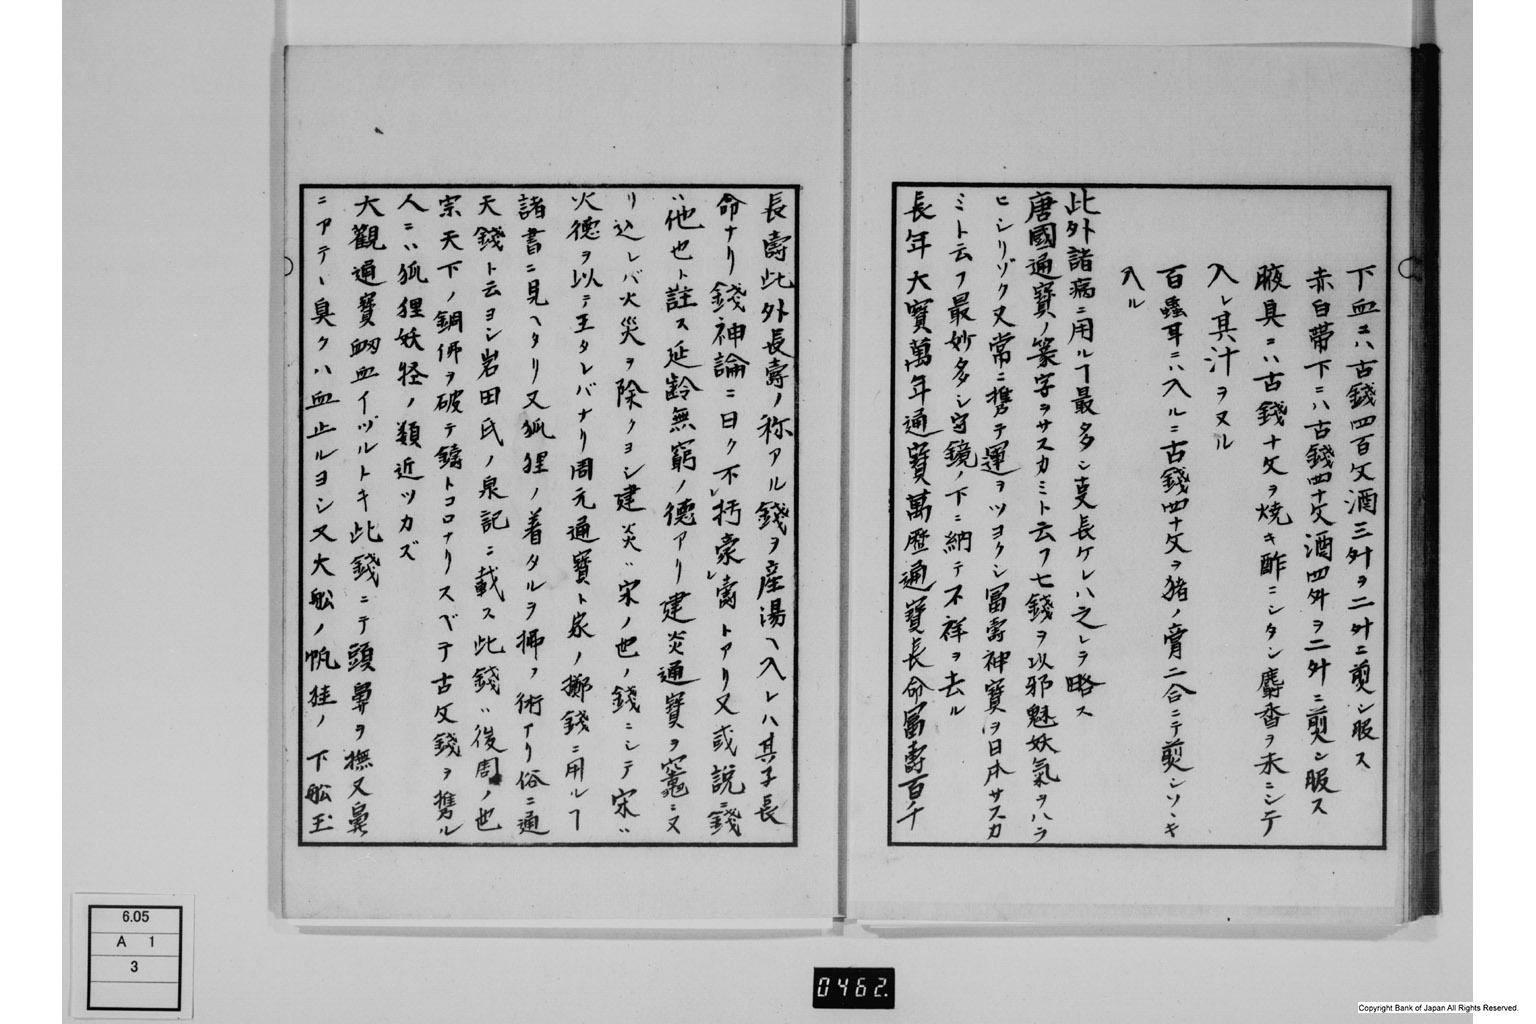 下血ニハ古錢四百文酒三升ヲ二升ニ煎シ服ス
赤白帯下ニハ古錢四十文酒四升ヲ二升ニ煎シ服ス
腋臭ニハ古錢十文ヲ焼キ酢ニシタシ麝香ヲ末ニシテ
入レ其汁ヲヌル
百蟲耳ニハ入ルニ古錢四十文ヲ猪ノ膏二合ニテ煎シソヽキ
入ル
此外諸病ニ用ルヿ最多シ㕝長ケレハ之レヲ略ス
唐國通寶ノ篆字ヲサスカミト云フ七錢ヲ以邪魅妖氣ヲハラ
ヒシリゾク又常ニ携テ運ヲツヨクシ冨壽神寶ヲ日本サスカ
ミト云フ最妙多シ守鏡ノ下ニ納テ不祥ヲ去ル
長年大寶萬年通寶萬歴通寶長命冨壽百千
長壽此外長壽ノ称アル錢ヲ産湯ヘ入レハ其子長
命ナリ錢神論ニ曰ク不朽象壽トアリ又或説ニ錢
ハ他也ト註ス延齢無窮ノ德アリ建炎通寶ヲ竈ニヌ
リ込レバ火災ヲ除クヨシ建炎ハ宋ノ世ノ錢ニシテ宋ハ
火德ヲ以テ王タレバナリ周元通寶ト家ノ擲錢ニ用ルヿ
諸書ニ見ヘタリ又狐狸ノ着タルヲ掃フ術アリ俗ニ通
天錢ト云ヨシ岩田氏ノ泉記ニ載ス此錢ハ後周ノ世
宗天下ノ銅佛ヲ破テ鑄トコロナリスベテ古文錢ヲ携ル
人ニハ狐狸妖怪ノ類近ツカズ
大觀通寶衂血イヅルトキ此錢ニテ頭鼻ヲ撫又鼻
ニアテヽ臭クハ血止ルヨシ又大舩ノ帆柱ノ下舩玉
6.05
A 1
3
0462.
Copyright Bank of Japan All Rights Reserved.